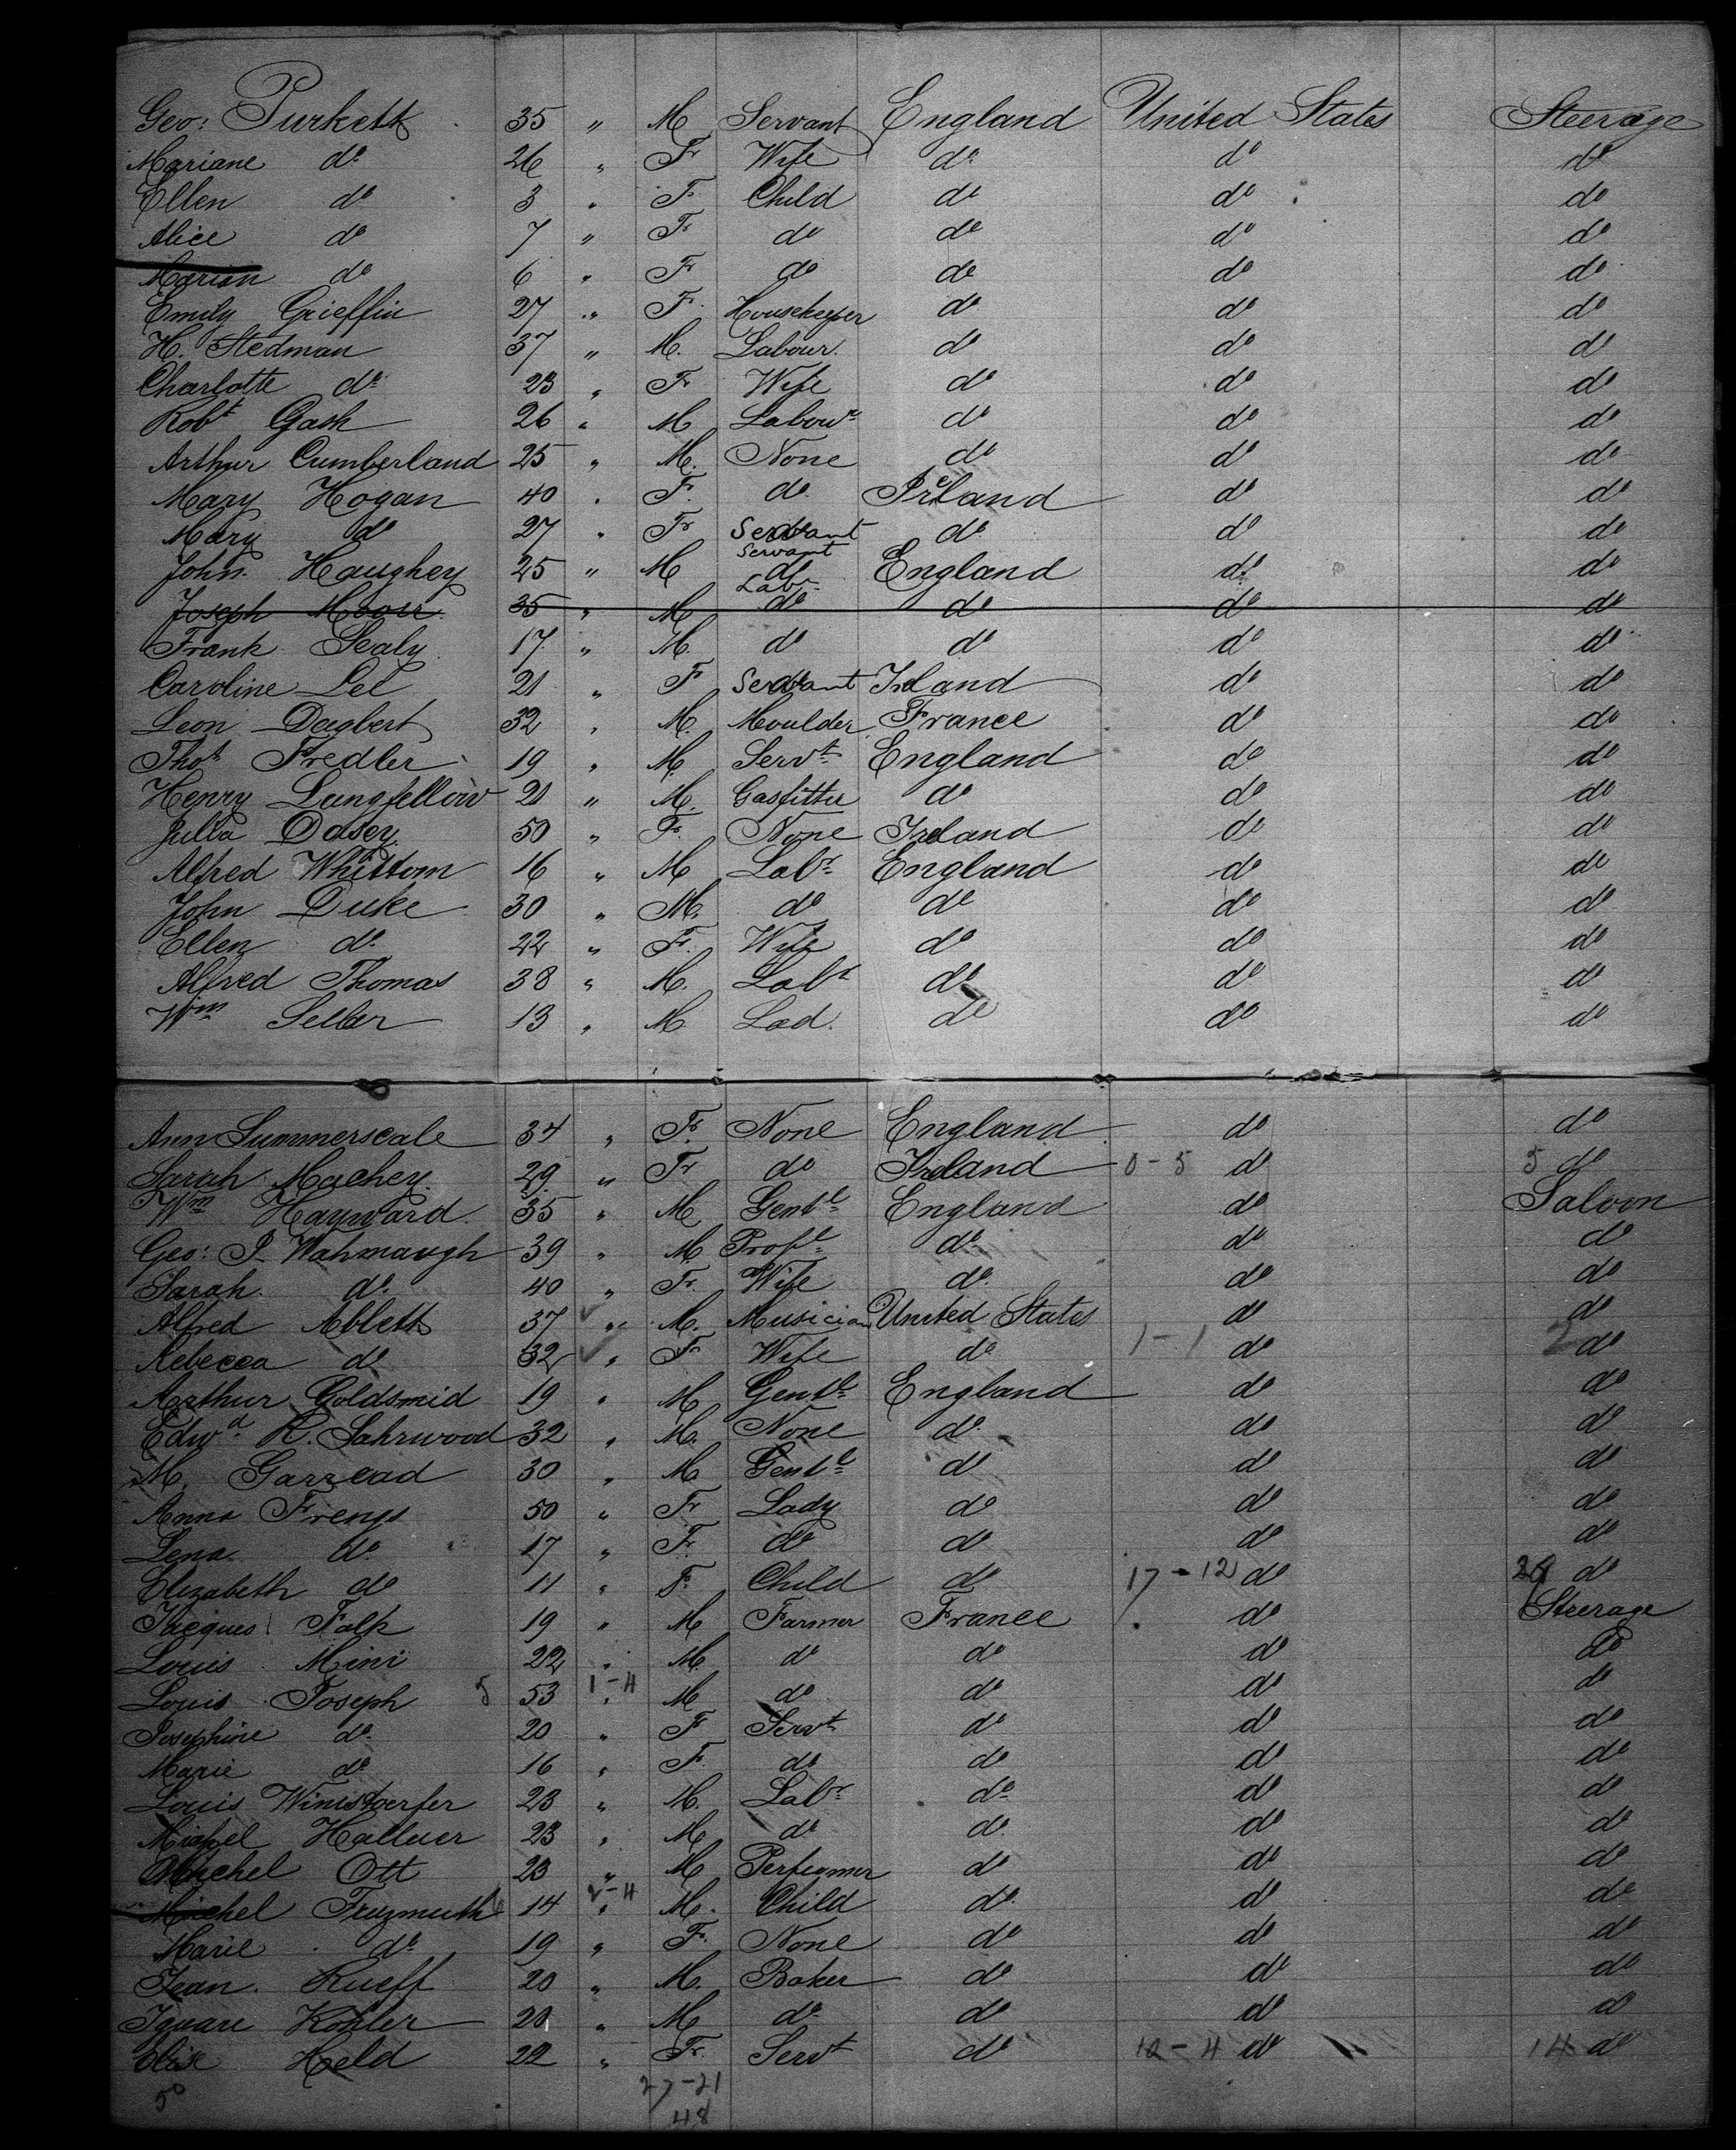 Geo: Purkett 35 " M Servant England United States Steerage
Mariane do 26 " F Wife do do do
Ellen do 3 " F Child do do do
Alice do 7 " F do do do do
Marion do 6 " F do do do do
Emily Grieffin 27 " F Housekeeper do do do
H. Stedman 37 " M. Labour. do do do
Charlotte do 23 " F Wife do do do
Robt Gash 26 " M Labour do do do
Arthur Cumberland 25 " M. None do do do
Mary Hogan 40 " F. do Ireland do do
Mary do 27 " F Servant do do do
Servant
John Haughey 25 " M do England do do
Labr
Joseph Moore 35 " M do do do do
Frank Sealy 17 " M. do do do do
Caroline Lee 21 " F Servant Ireland do do
Leon Dagbert 32 " M. Moulder France do do
Thos Fredler 19 " M Servt England do do
Henry Lungfellow 21 " M. Gasfitter do do do
Julia Dasey 50 " F. None Ireland do do
Alfred Whittom 16 " M Labr England do do
John Duke 30 " M. do do do do
Ellen do 22 " F. Wife do do do
Alfred Thomas 38 " M. Labr do do do
Wm Seller 13 " M Lad. do do do
Ann Summerscale 34 " F. None England do do
Sarah Machey 29 " F do Ireland 0-5 do 5 do
Wm Hayward 35 " M Gentl England do Saloon
Geo: P. Wahmaugh 39 " M Profl do do do
Sarah do 40 " F. Wife do do do
Alfred Ablett 37 " M. Musician United States do do
Rebecca do 32 " F Wife do 1-1 do 2 do
Arthur Goldsmid 19 " M Gentl England do do
Edwd R. Sahrwood 32 " M. None do do do
M. Garread 30 " M Gentl do do do
Anna Frengs 50 " F Lady do do do
Lena do 17 " F do do do do
Elizabeth do 11 " F. Child do 17-12 do 29 do
Jacques Falk 19 " M Farmer France do Steerage
Louis Mini 22 " M. do do do do
Louis Joseph 5 53 1-4 " M do do do do
Josephine do 20 " F Servt do do do
Marie do 16 " F do do do do
Louis Winistoerfer 23 " M. Labr do do do
Michel Halluer 23 " M do do do do
Michel Ott 23 " M Perfumer do do do
Michel 14 2-4 " M. Child do do do
Marie do 19 " F None do do do
Jean Rueff 20 " M. Baker do do do
Kohler 20 " M do do do do
Elise Held 22 " F. Servt do 10-4 do 14 do
50 27-21
48